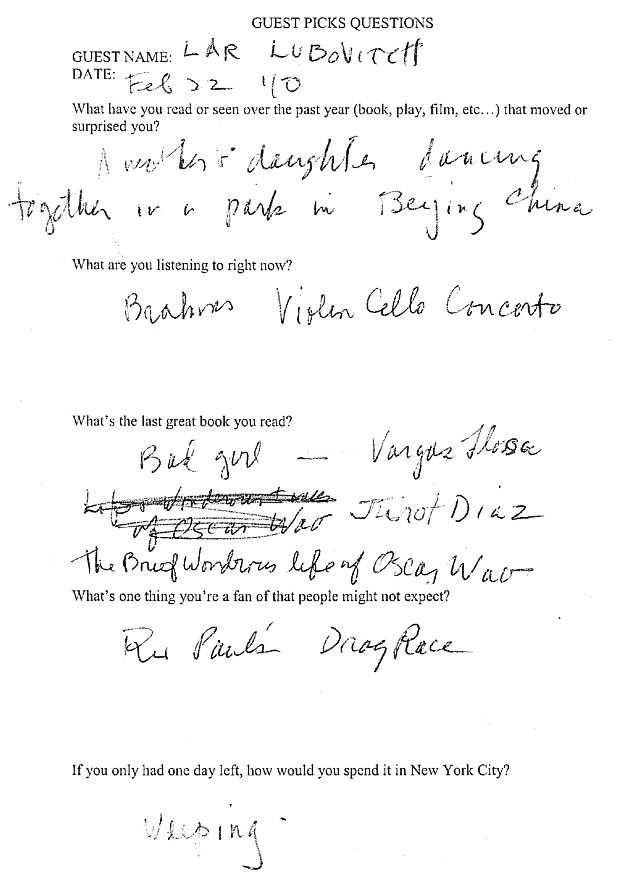 GUEST PICKS QUESTIONS
GUEST NAME: LAR LUBOVITCH
DATE: Feb 22 '10
What have you read or seen over the past year (book, play, film, etc...) that moved or
surprised you?
A mother & daughter dancing
together in a park in Beijing China
What are you listening to right now?
Brahms Violin Cello Concerto
What's the last great book you read?
Bad girl — Vargas Llosa
of Oscar Wao Junot Diaz
The Brief Wondrous life of Oscar Wao
What's one thing you're a fan of that people might not expect?
Ru Paul's Drag Race
If you only had one day left, how would you spend it in New York City?
Weeping